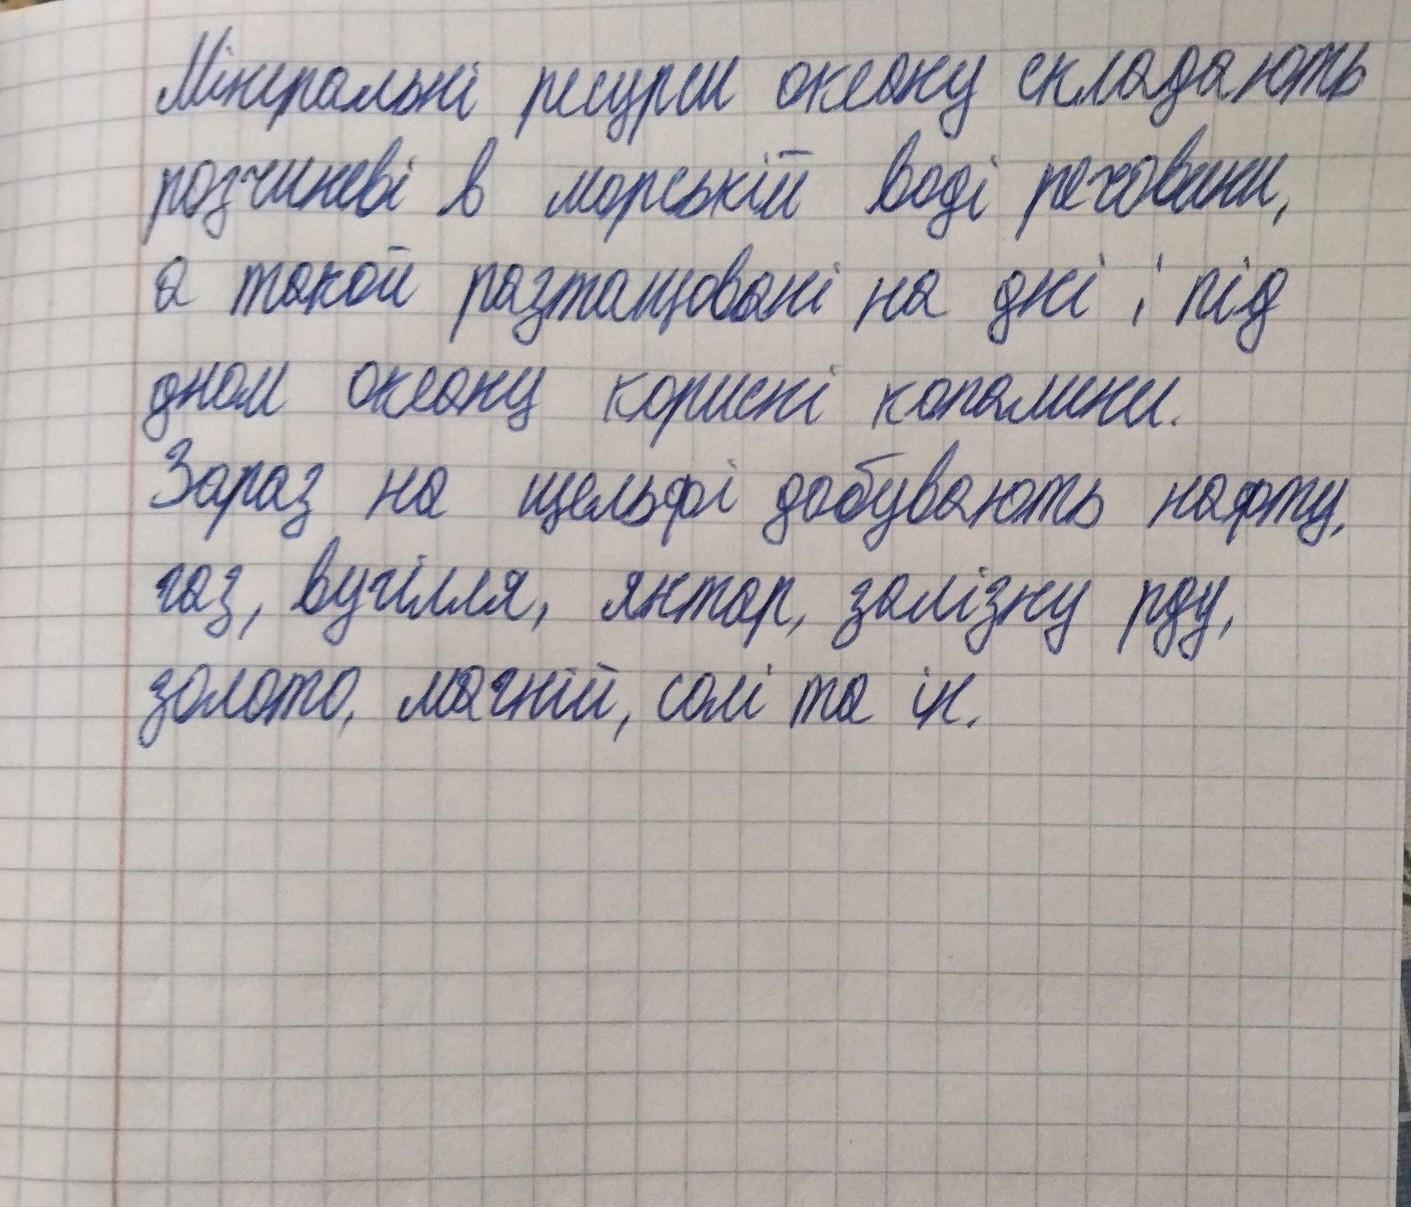 Мінеральні ресурси океану складають
розчиневі в морській воді речовини,
а такой разташовані на дні і під
дном океану корисні копалини.
Зараз на щельфі добувають нафту,
газ, вугілля, янтар, залізну рду,
золото, магній, солі та ін.